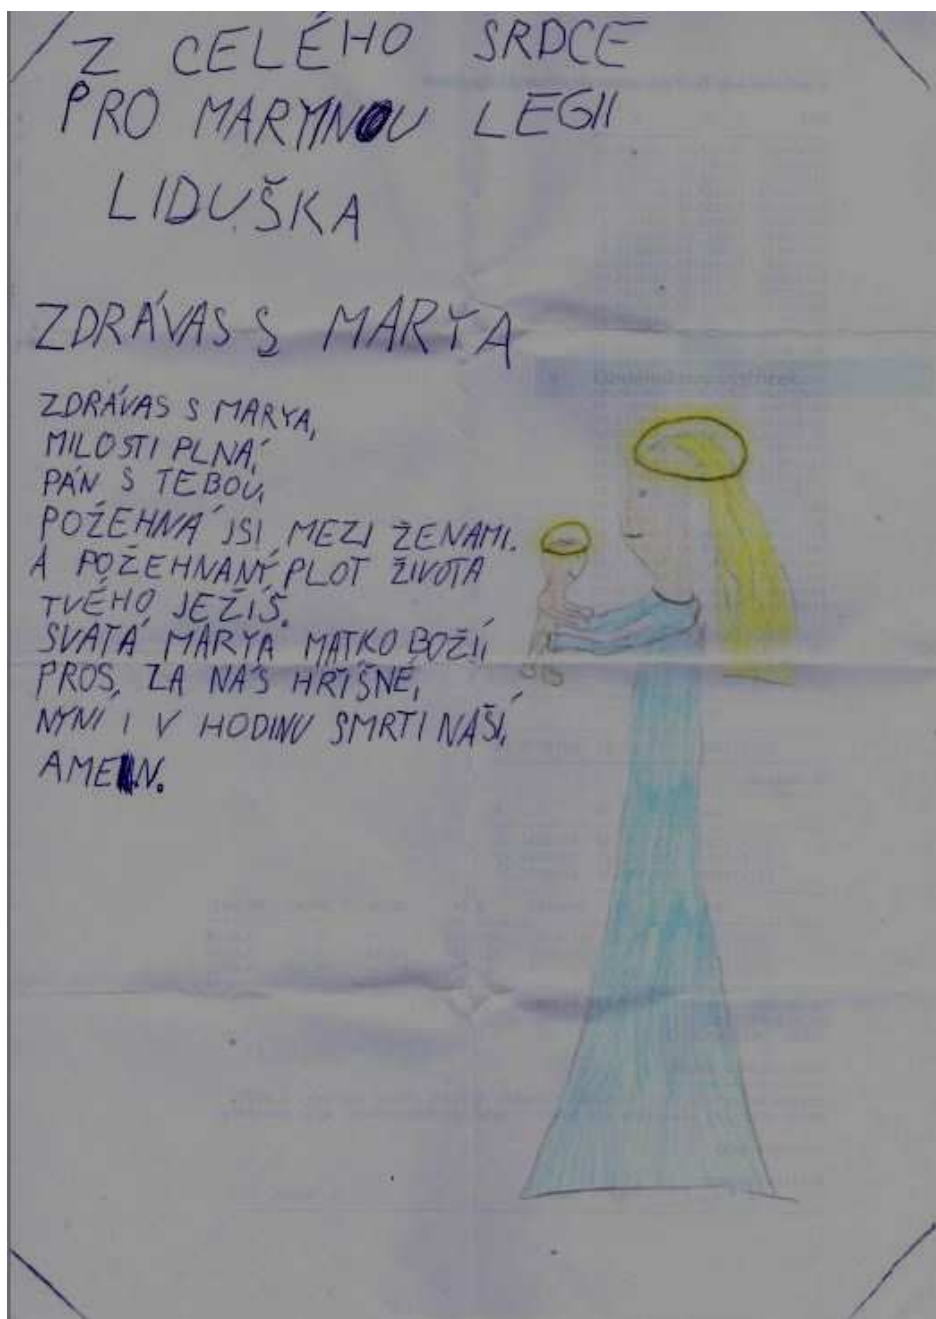 Z CELÉHO SRDCE
PRO MARYINOU LEGII
LIDUŠKA
ZDRÁVAS S MARYA
ZDRÁVAS S MARYA,
MILOSTI PLNÁ,
PÁN S TEBOU,
POŽEHNÁ JSI MEZI ŽENAMI.
A POŽEHNANÝ PLOT ŽIVOTA
TVÉHO JEŽÍŠ.
SVATÁ MARYA MATKO BOŽÍ,
PROS, ZA NÁS HŘÍŠNÉ,
NYNÍ I V HODINU SMRTI NAŠÍ,
AMEN.